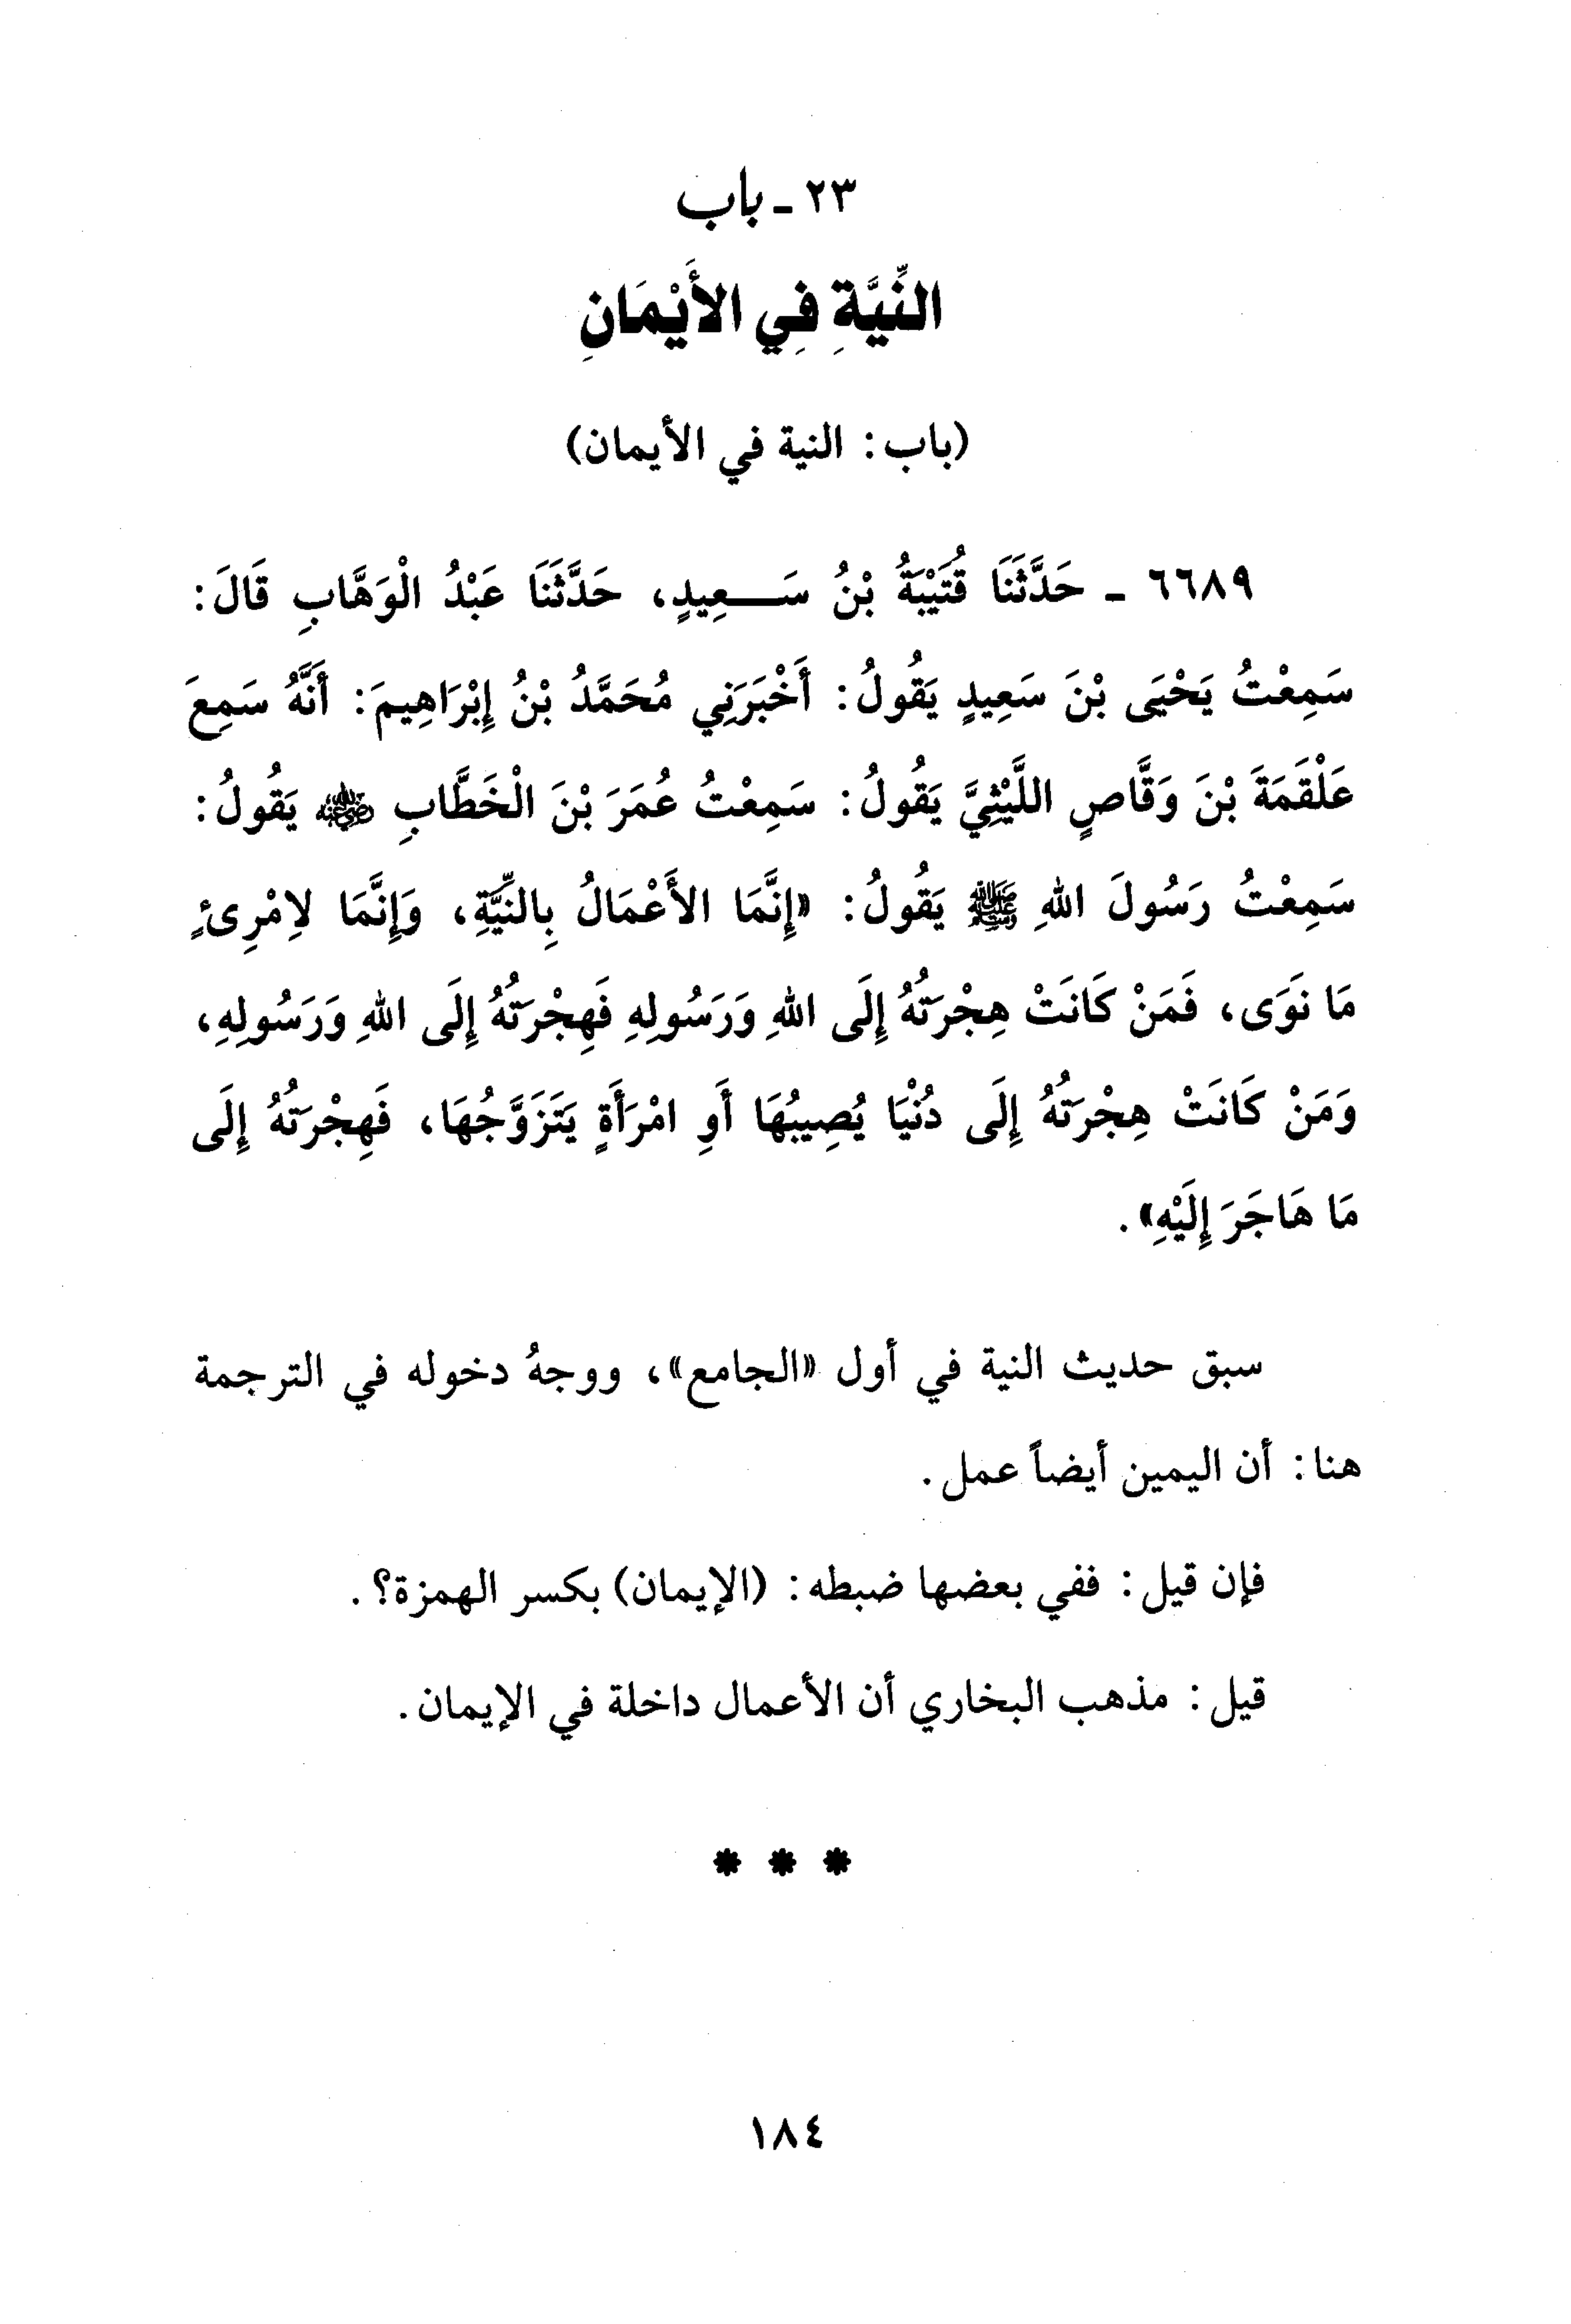 ٢٣ - باب
النِّيَّةِ فِي الأَيْمَانِ
(باب: النية في الأيمان)
٦٦٨٩ - حَدَّثَنَا قُتَيْبَةُ بْنُ سَـــعِيدٍ، حَدَّثَنَا عَبْدُ الْوَهَّابِ قَالَ:
سَمِعْتُ يَحْيَى بْنَ سَعِيدٍ يَقُولُ: أَخْبَرَنِي مُحَمَّدُ بْنُ إِبْرَاهِيمَ: أَنَّهُ سَمِعَ
عَلْقَمَةَ بْنَ وَقَّاصٍ اللَّيْثِيَّ يَقُولُ: سَمِعْتُ عُمَرَ بْنَ الْخَطَّابِ رضي الله عنه يَقُولُ:
سَمِعْتُ رَسُولَ اللهِ ﷺ يَقُولُ: «إِنَّمَا الأَعْمَالُ بِالنِّيَّةِ، وَإِنَّمَا لِامْرِئٍ
مَا نَوَى، فَمَنْ كَانَتْ هِجْرَتُهُ إِلَى اللهِ وَرَسُولِهِ فَهِجْرَتُهُ إِلَى اللهِ وَرَسُولِهِ،
وَمَنْ كَانَتْ هِجْرَتُهُ إِلَى دُنْيَا يُصِيبُهَا أَوِ امْرَأَةٍ يَتَزَوَّجُهَا، فَهِجْرَتُهُ إِلَى
مَا هَاجَرَ إِلَيْهِ».
سبق حديث النية في أول «الجامع»، ووجهُ دخوله في الترجمة
هنا: أن اليمين أيضاً عمل.
فإن قيل: ففي بعضها ضبطه: (الإيمان) بكسر الهمزة؟.
قيل: مذهب البخاري أن الأعمال داخلة في الإيمان.
* * *
١٨٤